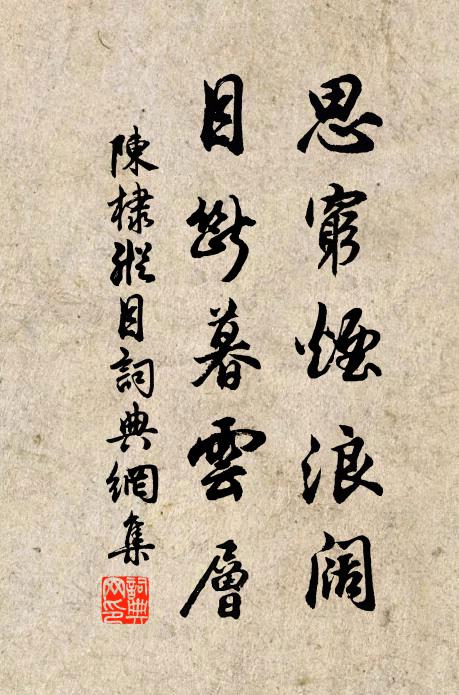 思窮煙浪闊
目斷暮雲層
陳棣縱目詞典網集
詞典